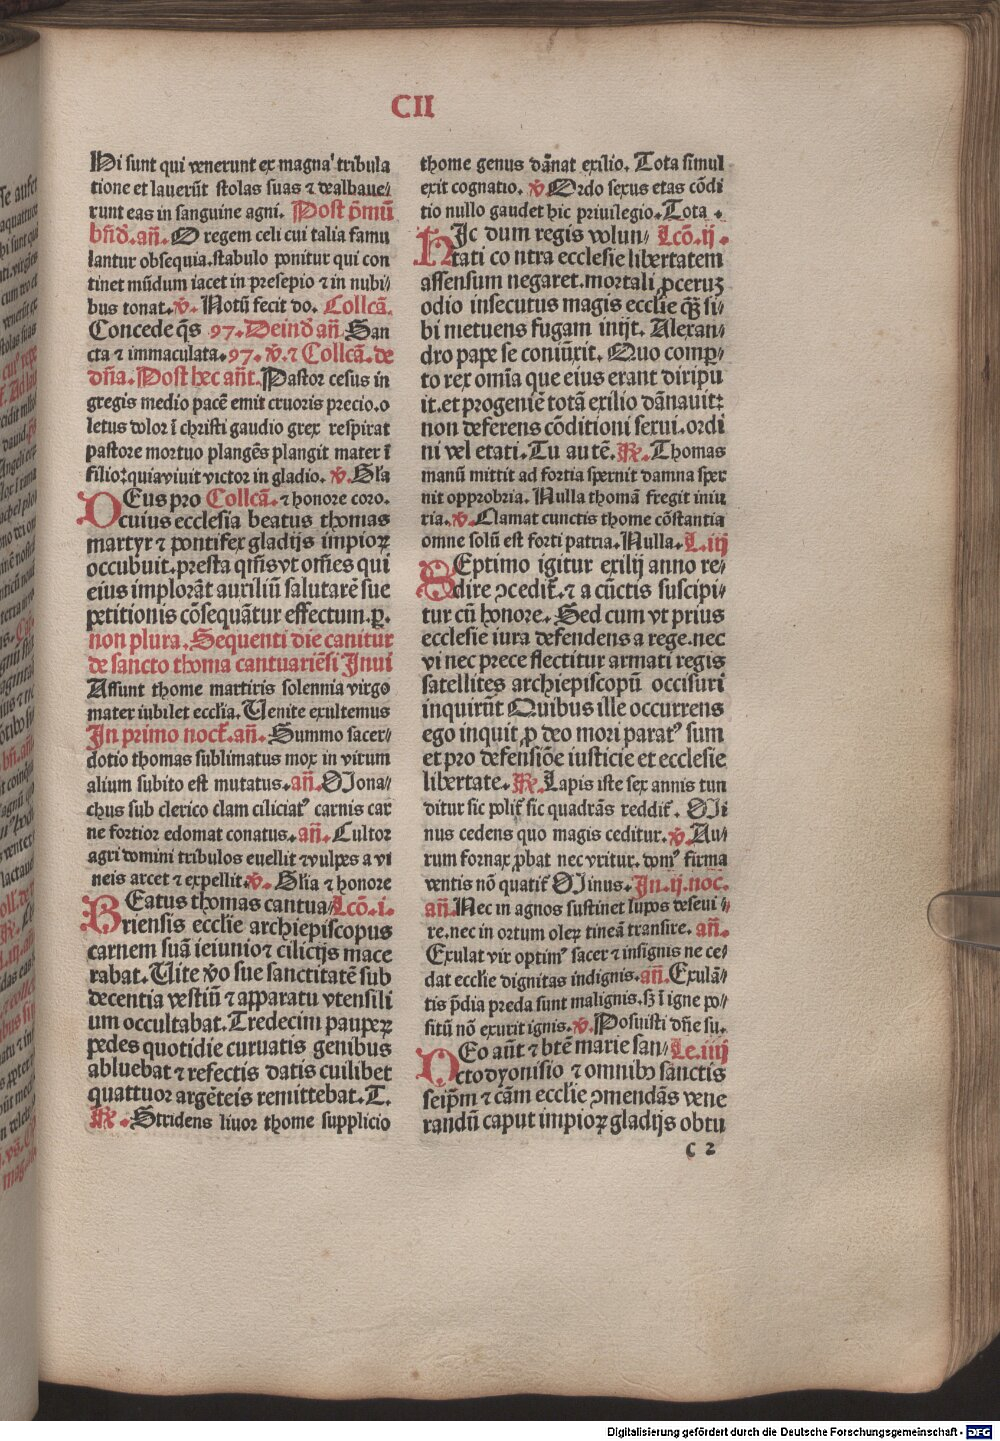 CII
Hi sunt qui venerunt ex magna tribula
tione et lauerūt stolas suas ⁊ dealbaue⸗
runt eas in sanguine agni. Post p̄mū
bn̄d. an̄. O regem celi cui talia famu
lantur obsequia. stabulo ponitur qui con
tinet mūdum iacet in presepio ⁊ in nubi⸗
bus tonat. v̄. Notū fecit do. Collcā.
Concede q̄s 97. Deind̄ an̄ San
cta ⁊ immaculata. 97. v̄. ⁊ Collcā. de
dn̄a. Post hec an̄t. Pastor cesus in
gregis medio pacē emit cruoris precio. o
letus dolor ī christi gaudio grex respirat
pastore mortuo plangēs plangit mater ī
filio: quia viuit victor in gladio. v̄. Gl̄a
DEus pro Collcā. ⁊ honore coro.
cuius ecclesia beatus thomas
martyr ⁊ pontifex gladijs impioꝝ
occubuit. presta qm̄s vt om̄es qui
eius implorāt auriliū salutarē sue
petitionis cōsequātur effectum. ꝑ.
non plura. Sequenti die canitur
de sancto thoma cantuariēsi Inui
Assunt thome martiris solennia virgo
mater iubilet ecclia. Uenite exultemus
In primo noct̄. an̄. Summo sacer⸗
dotio thomas sublimatus mox in virum
alium subito est mutatus. an̄. Mona⸗
chus sub clerico clam ciliciatꝰ carnis car
ne fortior edomat conatus. an̄. Cultor
agri domini tribulos euellit ⁊ vulpes a vi
neis arcet ⁊ expellit. v̄. Gl̄ia ⁊ honore
BEatus thomas cantua⸗ Lcō. i.
riensis ecclie archiepiscopus
carnem suā ieiunio ⁊ cilicijs mace
rabat. Uite v̄o sue sanctitatē sub
decentia vestiū ⁊ apparatu vtensili
um occultabat. Tredecim pauperꝝ
pedes quotidie curuatis genibus
abluebat ⁊ refectis datis cuilibet
quattuor argēteis remittebat. T.
℟. Stridens liuor thome supplicio
thome genus dānat exilio. Tota simul
exit cognatio. v̄ Ordo sexus etas cōdi
tio nullo gaudet hic priuilegio. Tota.
HIc dum regis volun⸗ Lcō. ij.
tati co ntra ecclesie libertatem
assensum negaret. mortali ꝓceruꝫ
odio insecutus magis ecclie qꝫ si⸗
bi metuens fugam inijt. Alexan⸗
dro pape se coniūxit. Quo comper⸗
to rex omīa que eius erant diripu
it. et progeniē totā exilio dānauit:
non deferens cōditioni sexui. ordi
ni vel etati. Tu autē. ℟. Thomas
manū mittit ad fortia spernit damna sper
nit opprobria. Nulla thomā fregit iniu
ria. v̄. Clamat cunctis thome cōstantia
omne solū est forti patria. Nulla. L. iij
SEptimo igitur exilij anno re⸗
dire ꝯcedit̄. ⁊ a cūctis suscipi⸗
tur cū honore. Sed cum vt prius
ecclesie iura defendens a rege. nec
vi nec prece flectitur armati regis
satellites archiepiscopū occisuri
inquirūt Quibus ille occurrens
ego inquit ꝓ deo mori paratꝰ sum
et pro defensiōe iusticie et ecclesie
libertate. ℟. Lapis iste sex annis tun
ditur sic polit̄ sic quadrās reddit̄. Mi
nus cedens quo magis ceditur. v̄. Au⸗
rum fornax ꝓbat nec vritur. domꝰ firma
ventis nō quatit̄ Minus. In. ij. noc.
an̄. Nec in agnos sustinet lupos deseui⸗
re. nec in ortum oleꝝ tineā transire. an̄.
Exulat vir optimꝰ sacer ⁊ insignis ne ce⸗
dat ecclie dignitas indignis. an̄. Exulā⸗
tis p̄dia preda sunt malignis. sꝫ ī igne po⸗
sitū nō exurit ignis. v̄. Posuisti dn̄e su.
DEo aūt ⁊ btē marie san⸗ Le. iiij
cto dyonisio ⁊ omnibꝰ sanctis
seip̄m ⁊ cām ecclie ꝯmendās vene
randū caput impioꝝ gladijs obtu
c 2
Digitalisierung gefördert durch die Deutsche Forschungsgemeinschaft - DFG